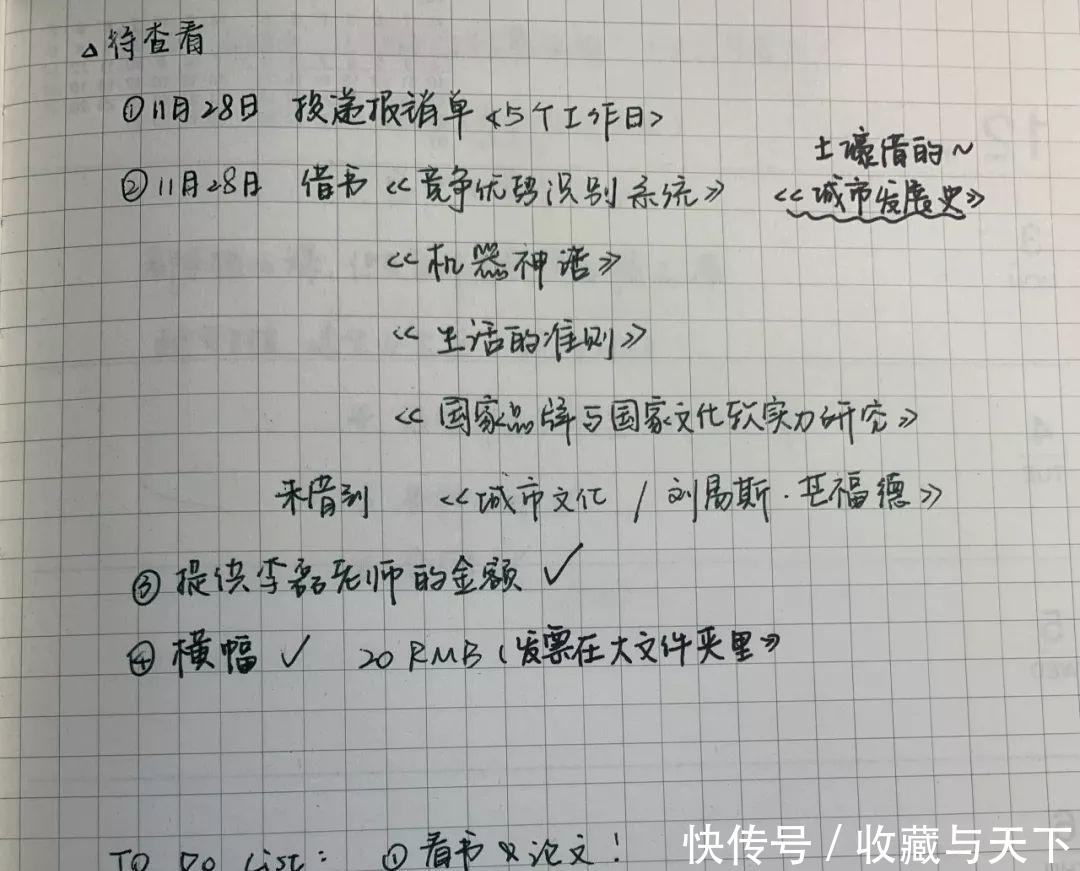 △待查看
①11月28日 投递报销单<5个工作日>
②11月28日 借书《竞争优势识别系统》
土壕借的~
《城市发展史》
《机器神话》
《生活的准则》
《国家品牌与国家文化软实力研究》
未借到 《城市文化 / 刘易斯·芒福德》
③提供李磊老师的金额 ✓
④横幅 ✓ 20 RMB(发票在大文件夹里》
TO DO List: ①看书&论文!
快传号 / 收藏与天下